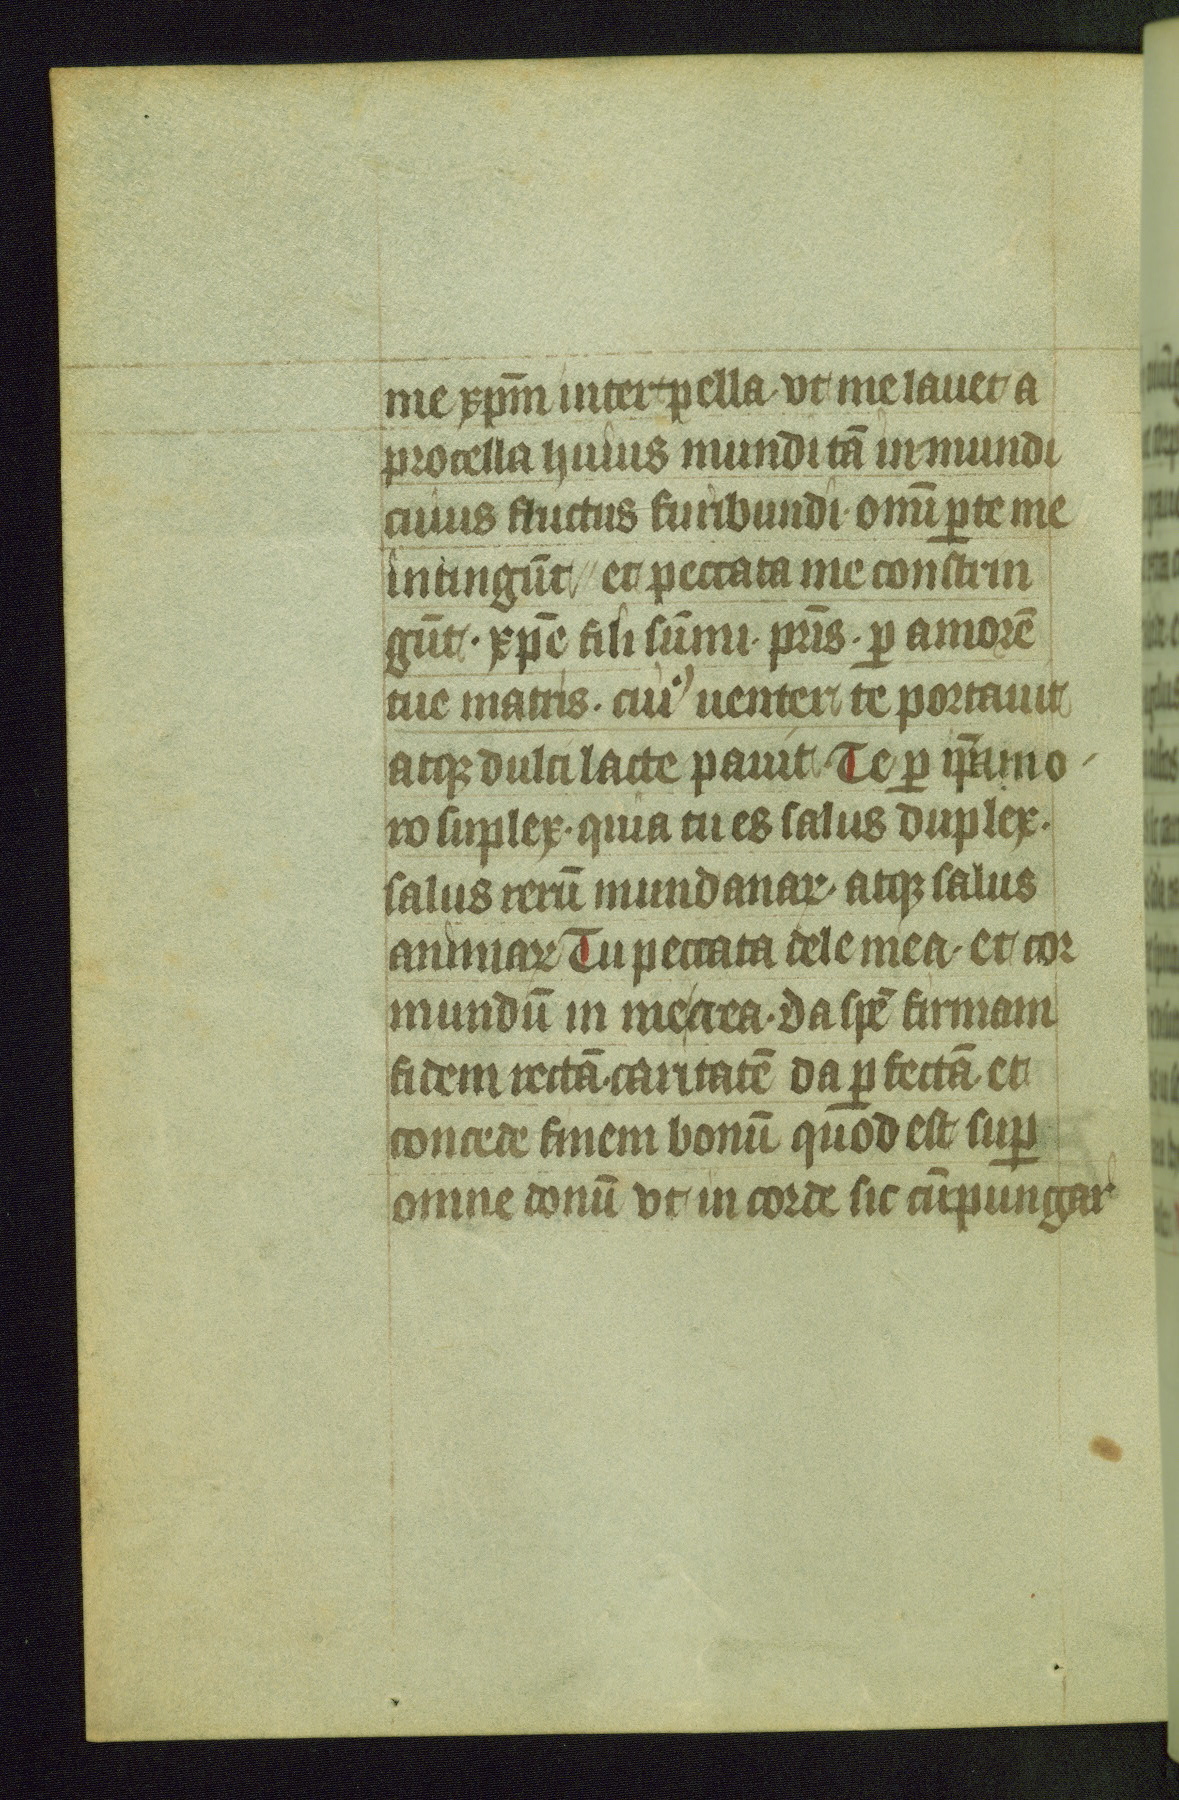 me xp̄m inter pella vt me lauet a
procella huius mundi tā in mundi
cuius fluctus furibundi· om̄i ꝑte me
intingūt et peccata me constrin
gūt· xp̄e fili sūmi· pr̄is· ꝑ amorē
tue matris· cuiꝰ uenter te portauit
atqꝫ dulci lacte pauit· Te ꝑ ip̄am o
ro suplex· quia tu es salus duplex·
salus rerū mundanaꝝ· atqꝫ salus
animaꝝ Tu peccata dele mea· et cor
mundū in me crea· da spē firmam
fidem rectā· caritatē da ꝑfectā· et
concede finem bonū quod est suꝑ
omne donū vt in corde sic cūpungar